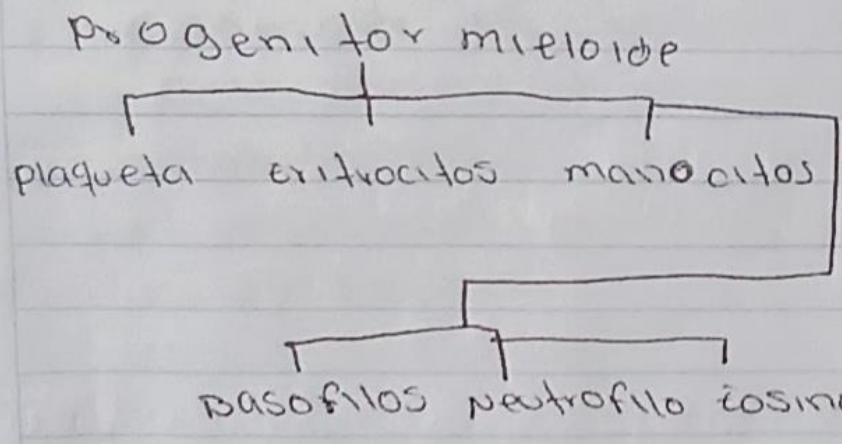 Progenitor mieloide
plaqueta eritrocitos manocitos
Basofilos Neutrofilo